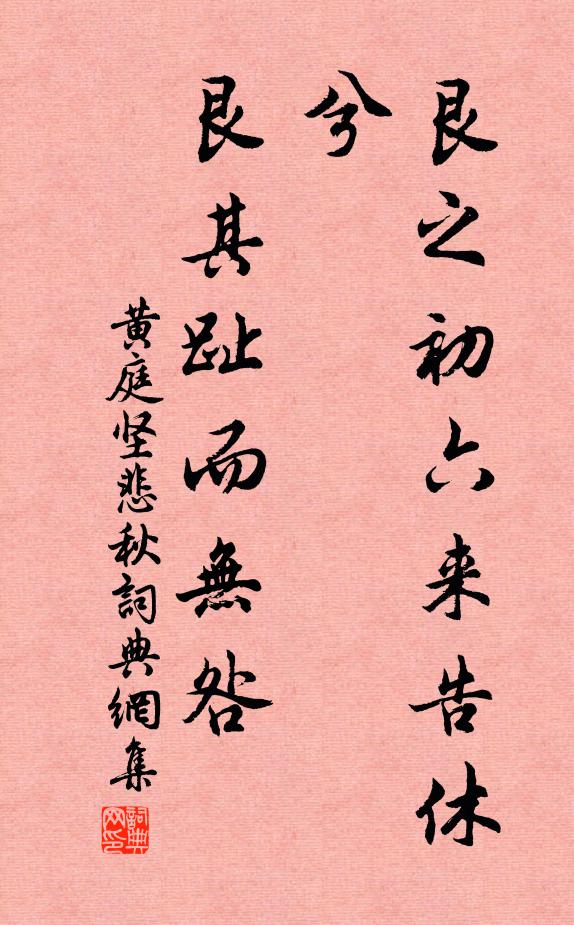 艮之初六来告休
兮
艮其趾而無咎
黄庭坚悲秋詞典網集
詞典网印